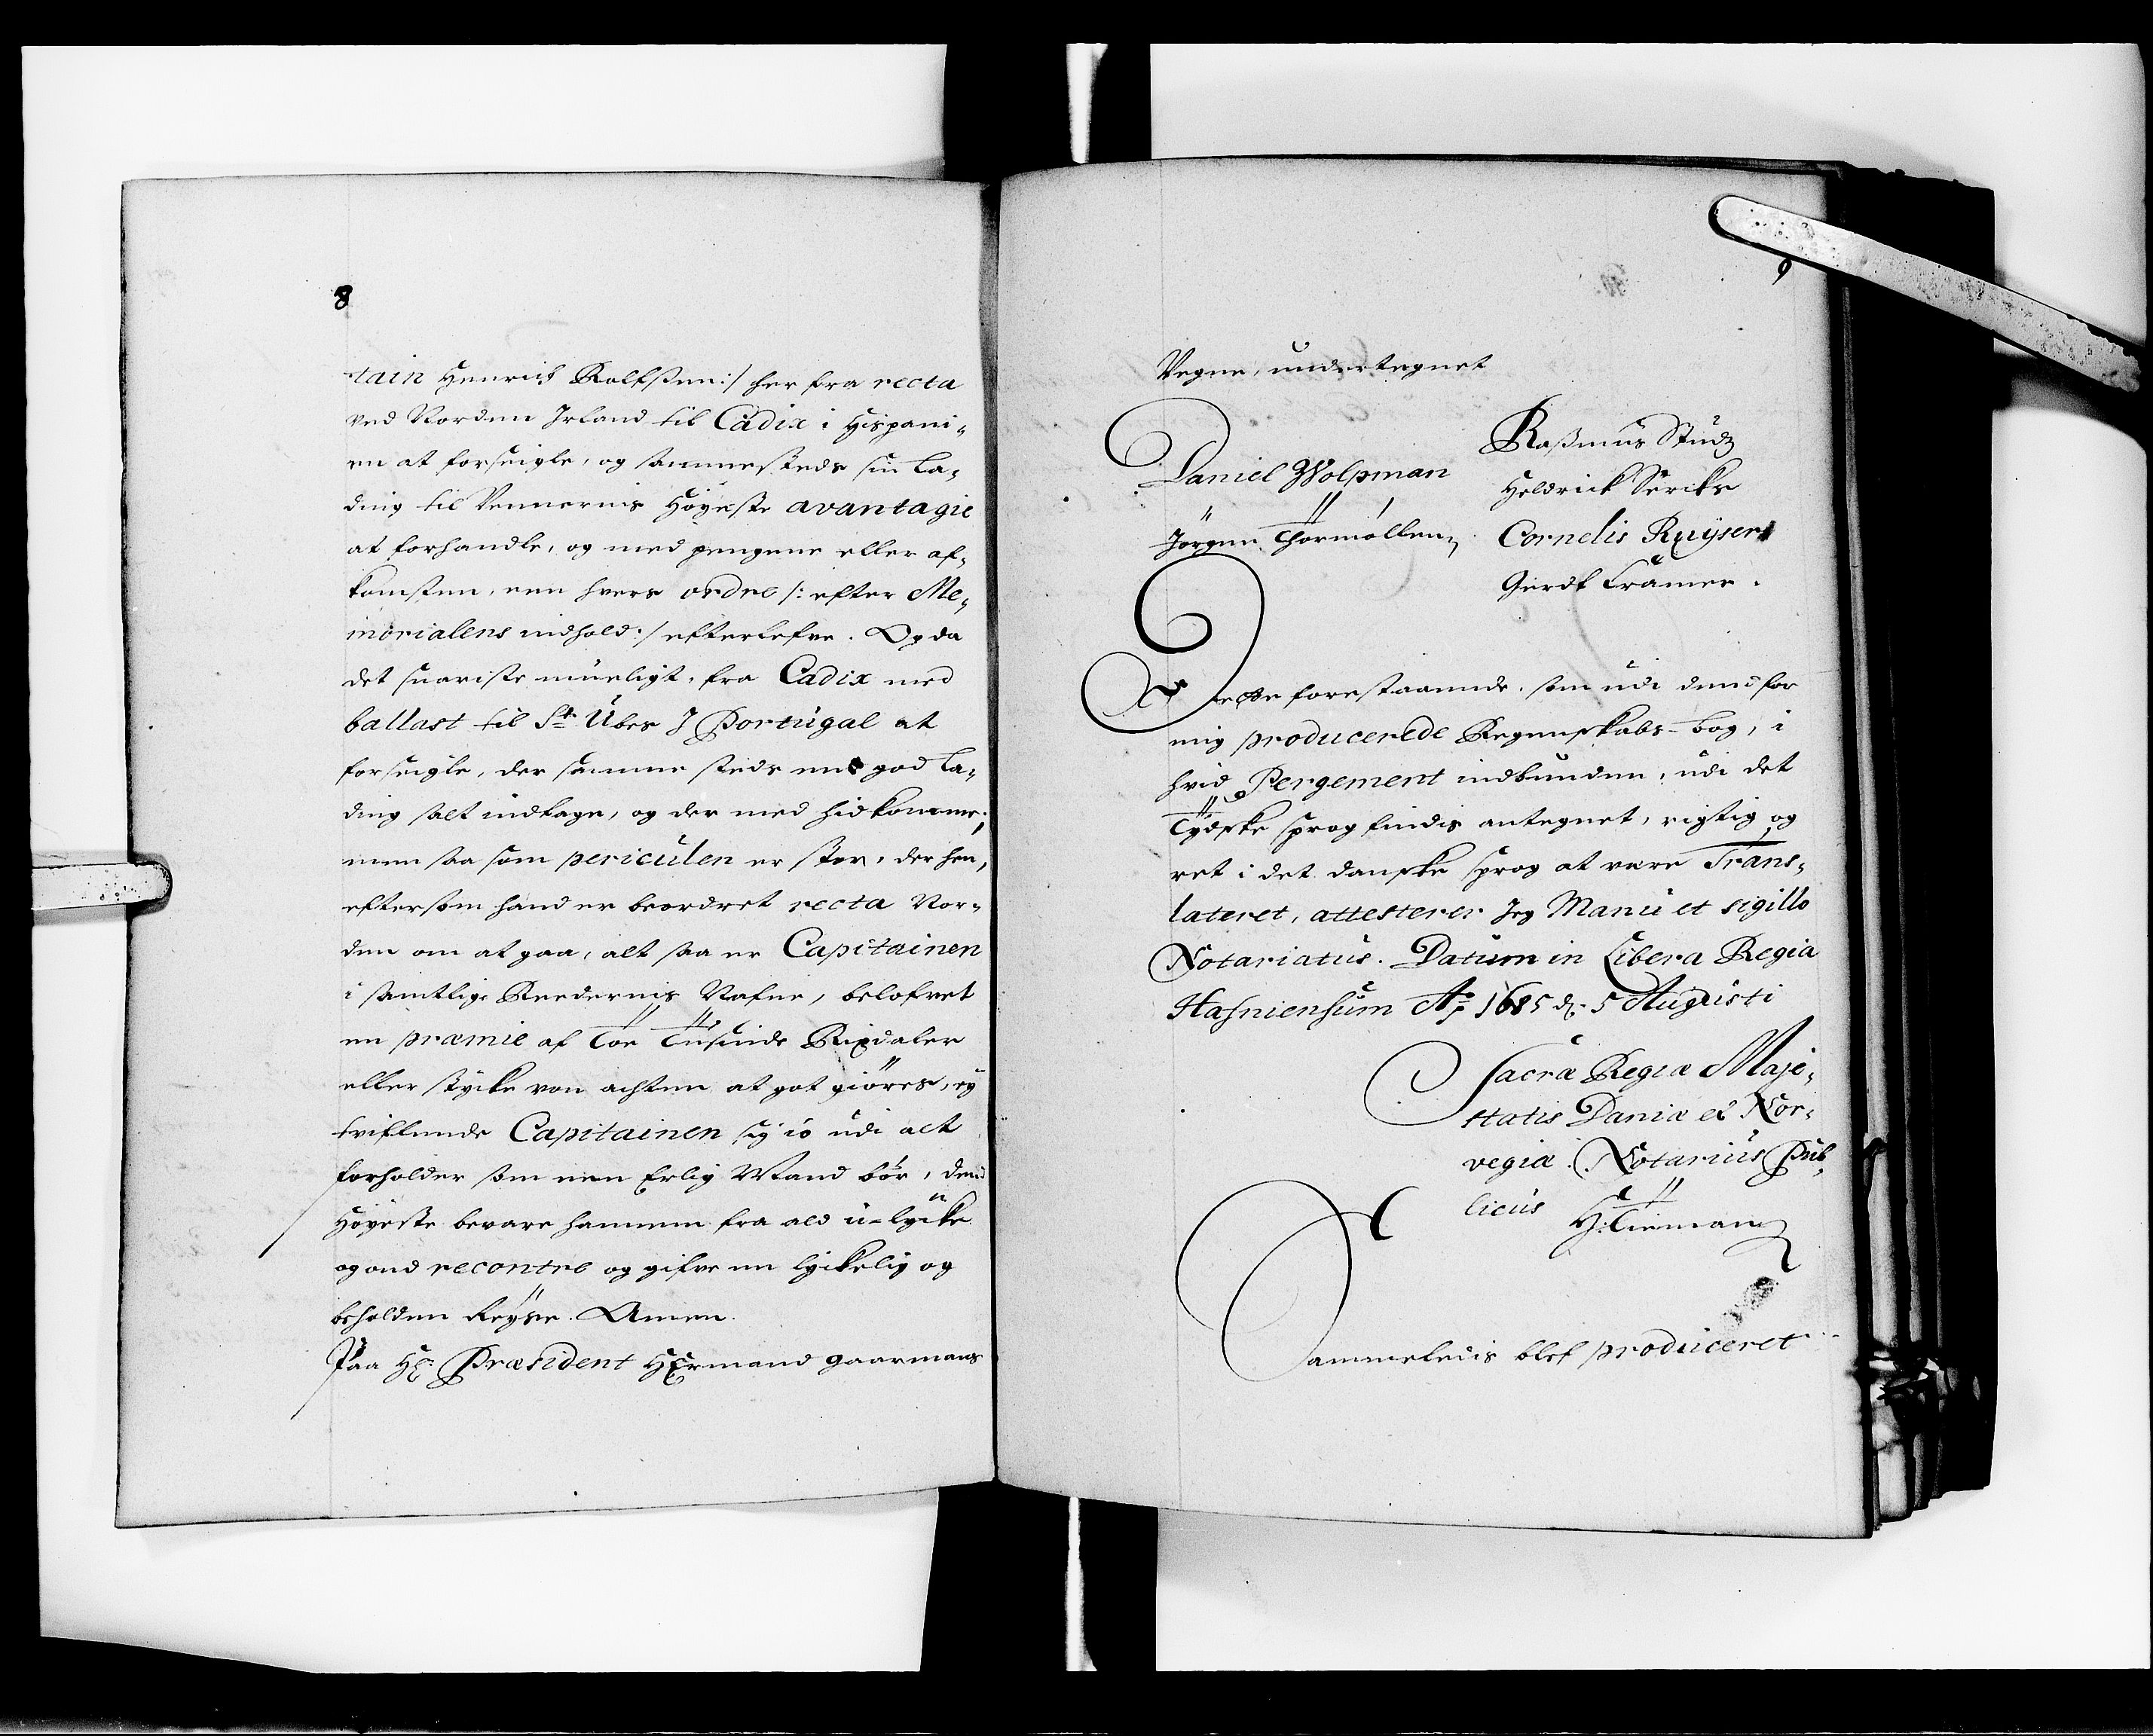 8
tain Henrich Rolfsen:/ her fra recta
ved Norden Irland til Cadix i Hispani-
en at forseigle, og sammesteds sin La-
ding til Vennernis Høyeste avantagie
at forhandle, og med pengene eller af-
komsten, een hvers ordre /: efter Me-
morialens indhold:/ efterlefve. Og da
det snariste mueligt, fra Cadix med
ballast til St. Ubes J Portugal at
forseigle, der samme steds en god La-
ding salt indtage, og der med hidkomme;
men saa som periculen er stor, der hen,
eftersom hand er beordret recta Nor-
den om at gaa, alt saa er Capitainen
i samtlige Reedernis Nafne, belofvet
en præmie af Toe Tusinde Rixdaler
eller stycke von achten at got giöres, ey
tviflende Capitainen sig io udi alt
forholder som een Erlig Mand bör, dend
Høyeste bevare hannem fra ald u-lycke
og ond recontre og gifve en lyckelig og
beholden Reyse. Amen.
Paa Hr: Præsident Hermand gaarmans
9
Vegne, undertegnet
Rasmus Stud
Daniel Wolpman
Heldrick Sercke
Jörgen Thormöllen
Cornelis Ruyser
Gerdt Cramer.
Dette forestaaende, som udi dend for
mig producerede Regenskabs-bog, i
hvid Pergement indbunden, udi det
Tydske sprog findis antegnet, rigtig og
ret i det danske sprog at være Trans-
lateret, attesterer Jeg Manu et sigillo
Notariatus. Datum in Libera Regia
Hafniensium Ao 1685 d. 5 Augusti
Sacræ Regiæ Maje-
statis Daniæ et Nor-
vegiæ Notarius Pub-
licus H: Tieman
Sammeledis blef produceret